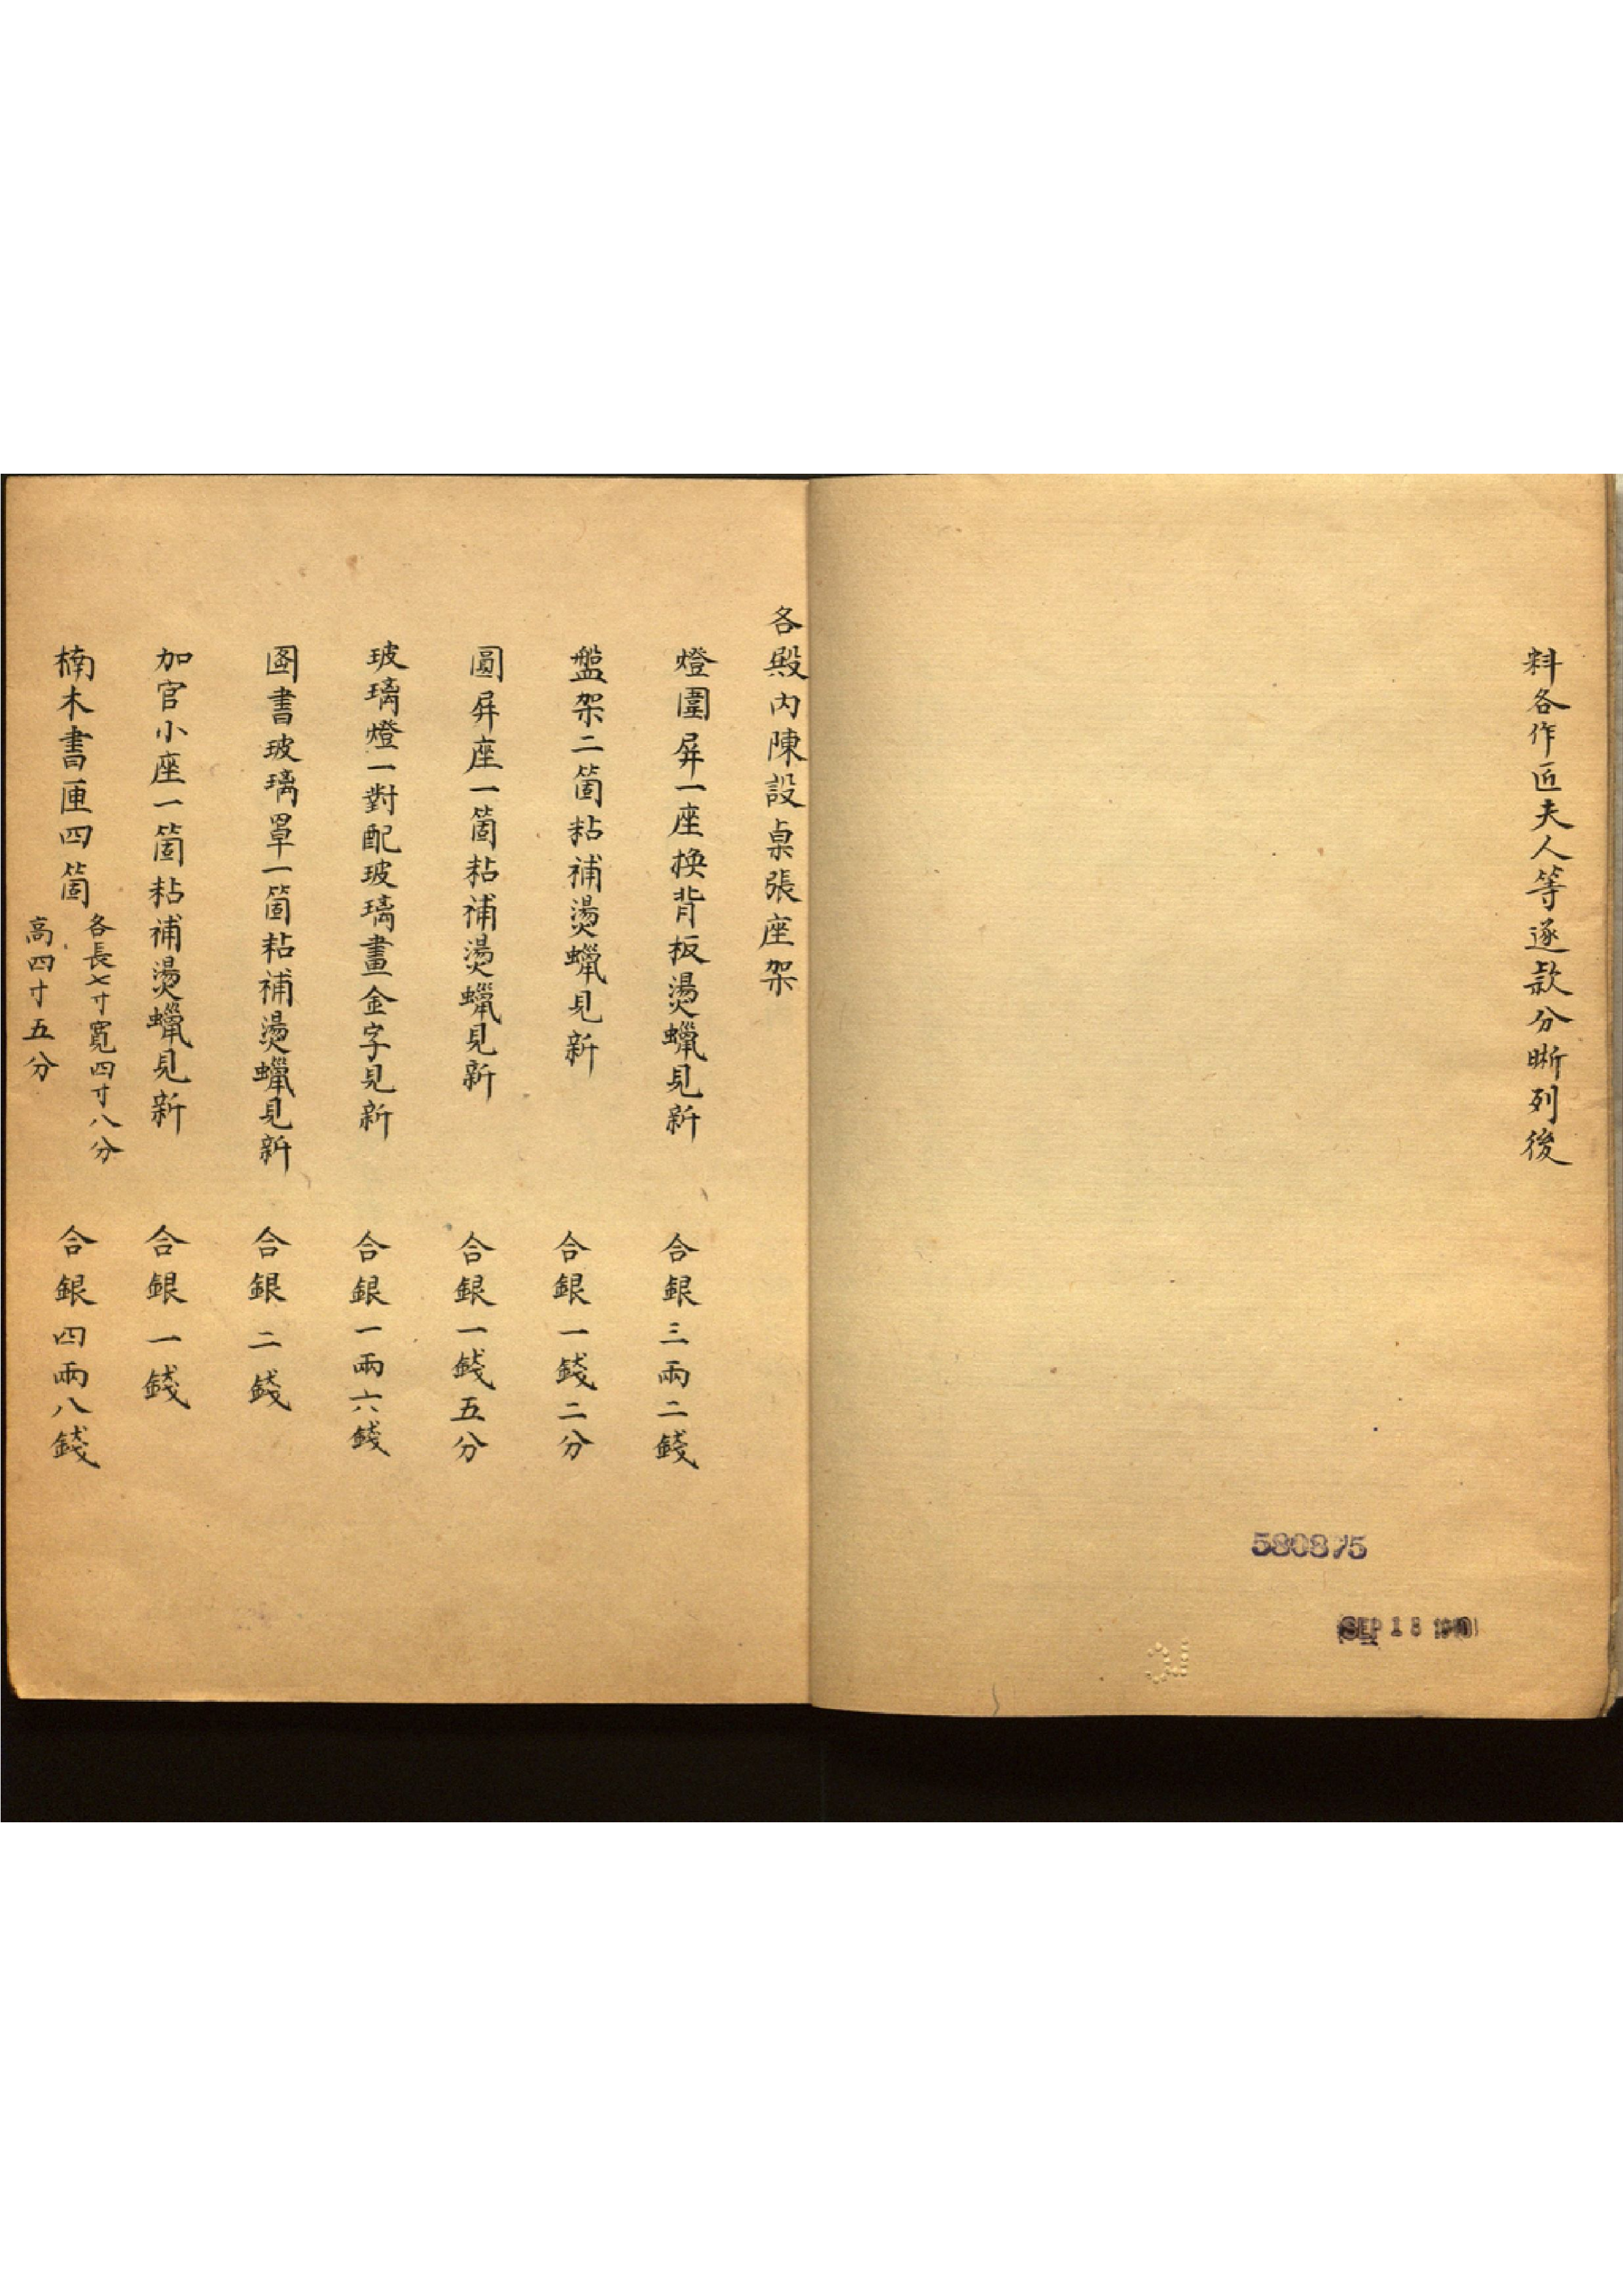 料各作匠夫人等逐款分晰列後
580875
SEP 18
LC
各殿内陳設桌張座架
燈圍屏一座換背板燙蠟見新 合銀三兩二錢
盤架二箇粘補燙蠟見新 合銀一錢二分
圓屏座一箇粘補燙蠟見新 合銀一錢五分
玻璃燈一對配玻璃畫金字見新 合銀一兩六錢
圖書玻璃罩一箇粘補燙蠟見新 合銀二錢
加官小座一箇粘補燙蠟見新 合銀一錢
楠木書匣四箇 各長七寸寬四寸八分
高四寸五分 合銀四兩八錢